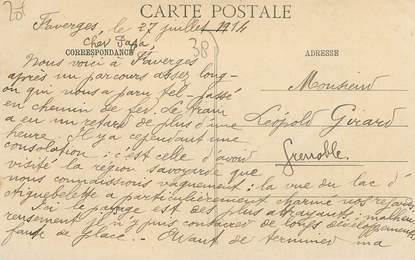 CARTE POSTALE
Faverges, le 27 juillet 1914
Cher Papa,
CORRESPONDANCE
ADRESSE
38
Nous voici à Faverges
après un parcours assez long
ou qui nous a paru tel - passé
en chemin de fer. Le train
a eu un retard de plus d'une
heure. Il y a cependant une
consolation : c'est celle d'avoir
visité la région savoyarde que
nous connaissions vaguement : la vue du lac d'
Aiguebelette a particulièrement charmé nos regards.
Là le paysage est des plus attrayants : malheu-
reusement je n'y puis consacrer de longs développements,
faute de place. - Avant de terminer ma
Monsieur
Léopold Girard
Grenoble.